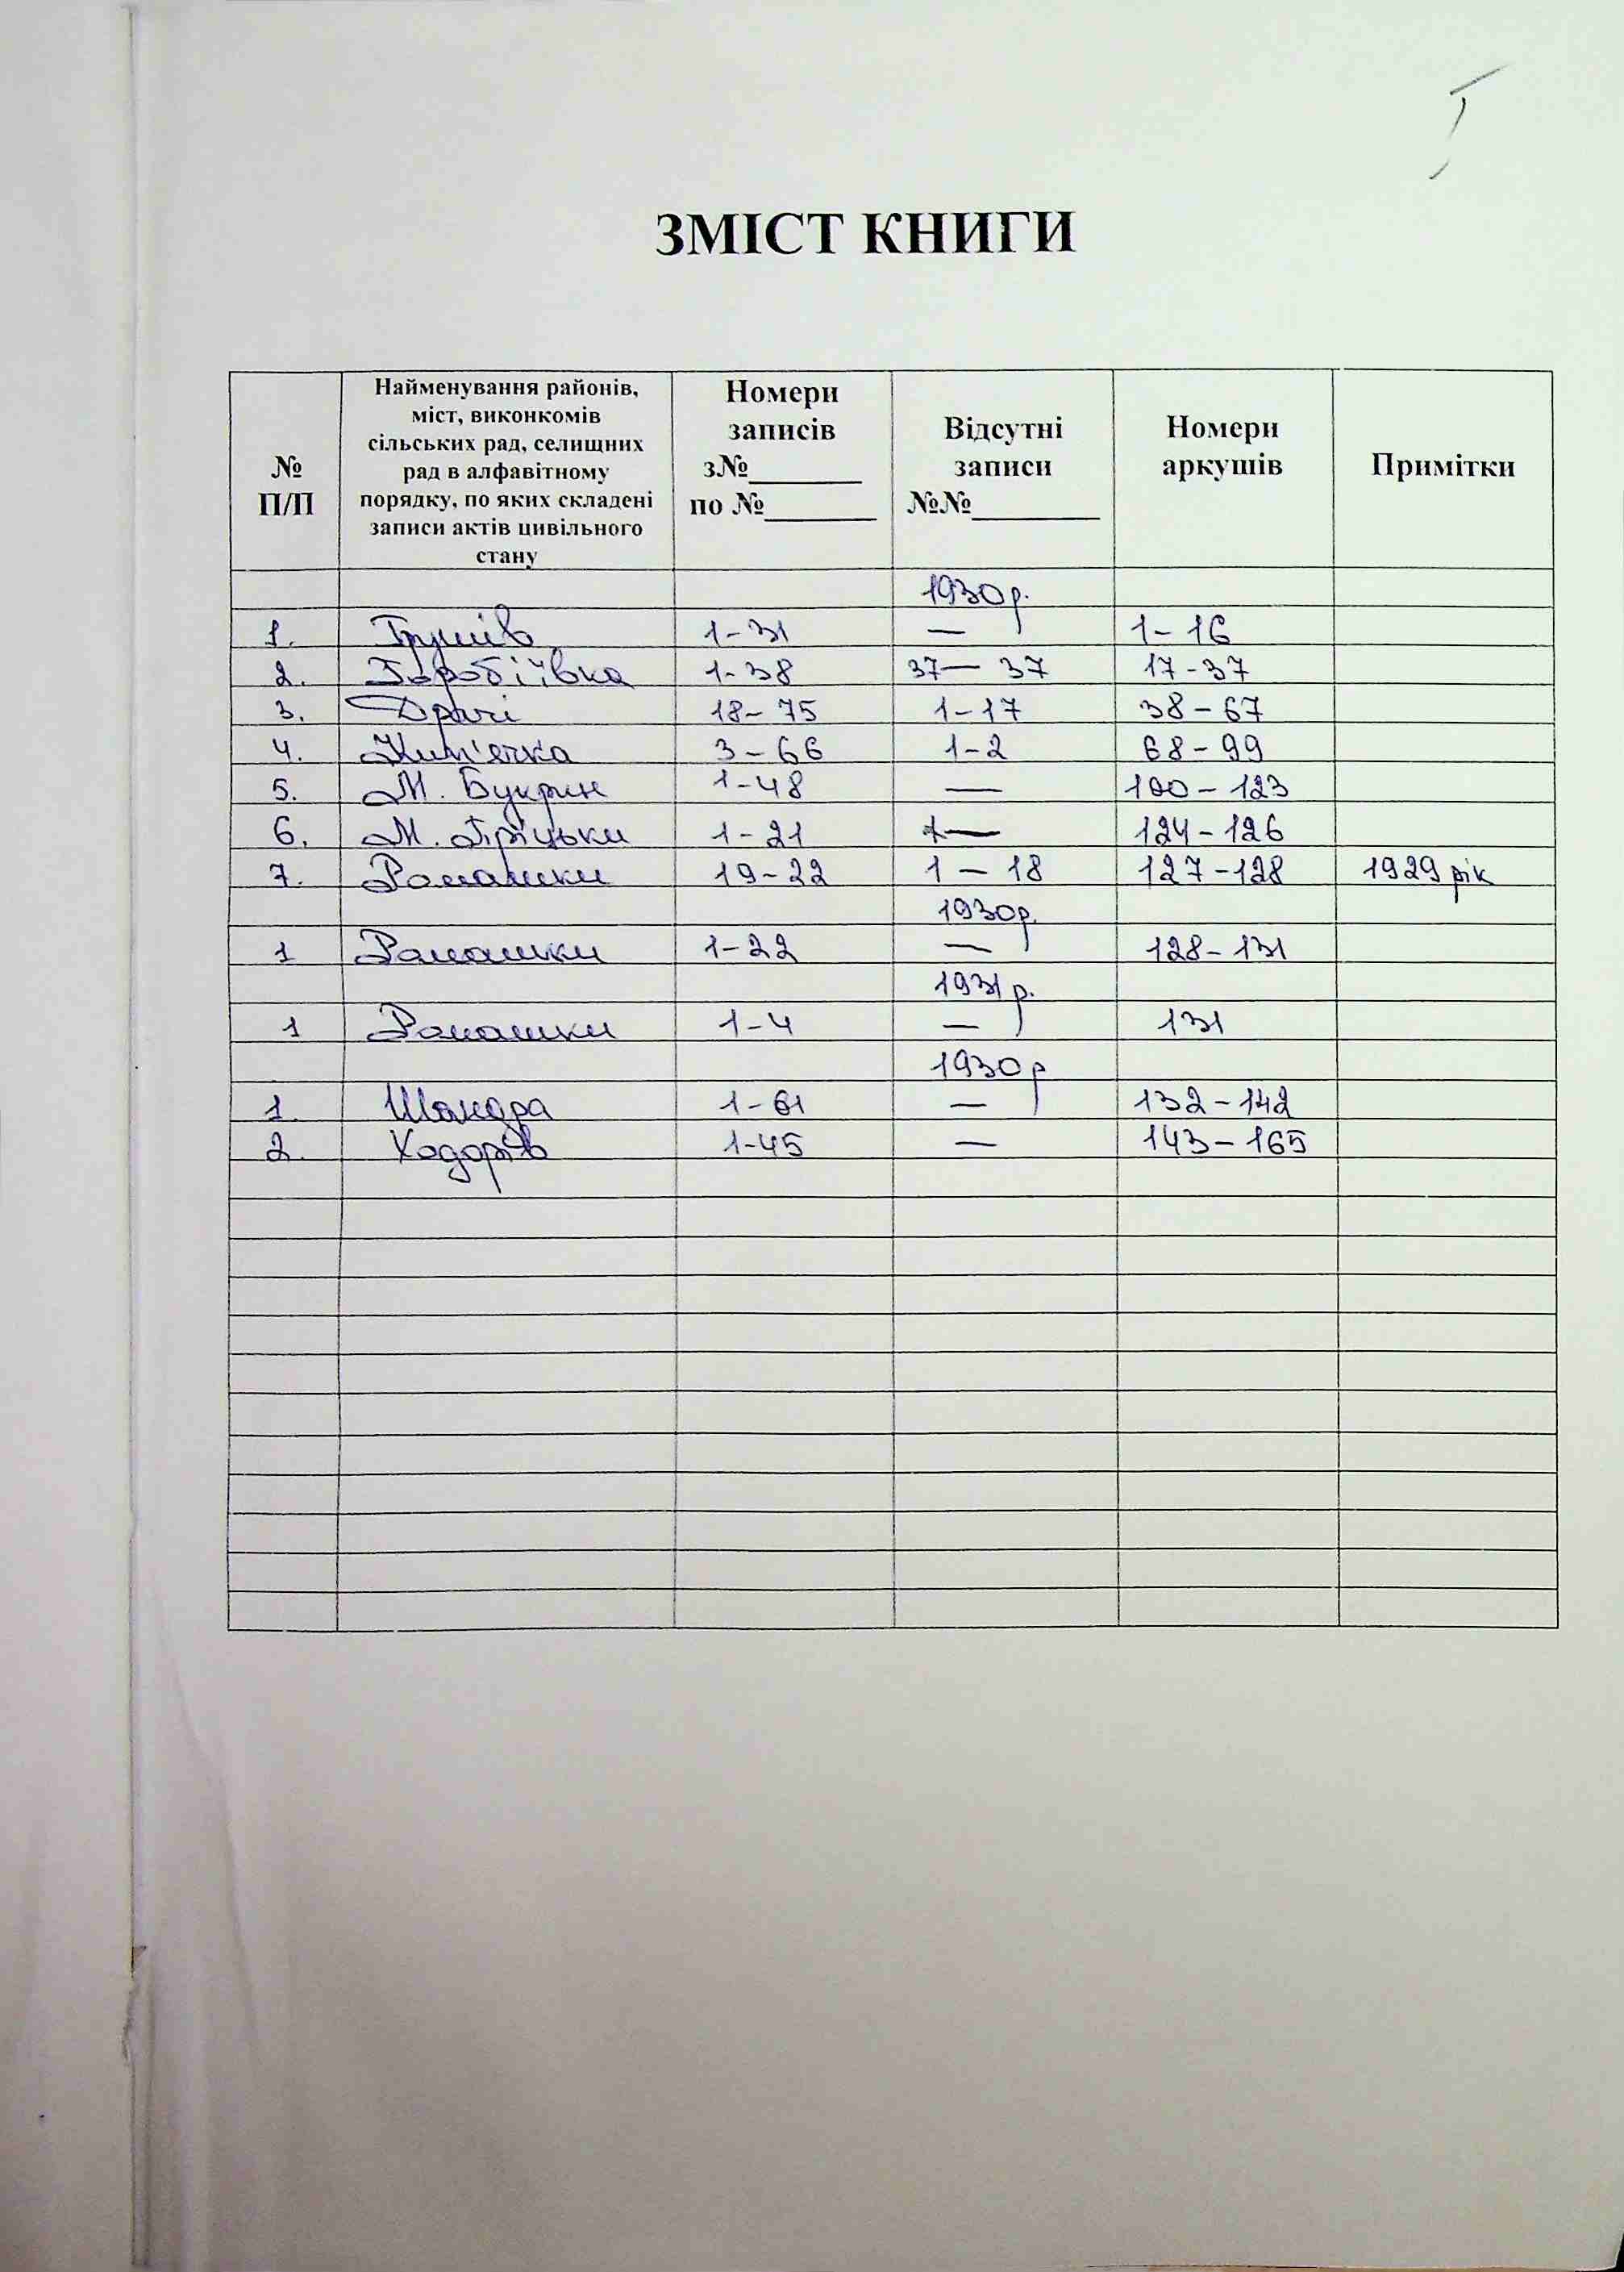 ЗМІСТ КНИГИ
№ П/П
Найменування районів, міст, виконкомів сільських рад, селищних рад в алфавітному порядку, по яких складені записи актів цивільного стану
Номери записів з№_______ по №_______
Відсутні записи №№________
Номери аркушів
Примітки
1930р.
1. Грушів 1-31 — 1-16
2. Горобіївка 1-38 37— 37 17-37
3. Драчі 18-75 1-17 38-67
4. Кип'ячка 3-66 1-2 68-99
5. М. Букрин 1-48 — 100-123
6. М. 1-21 — 124-126
7. Ромашки 19-22 1-18 127-128 1929 рік
1930р.
1 Ромашки 1-22 — 128-131
1931р.
1 Ромашки 1-4 — 131
1930р
1. Шандра 1-61 — 132-142
2. Ходорів 1-45 — 143-165